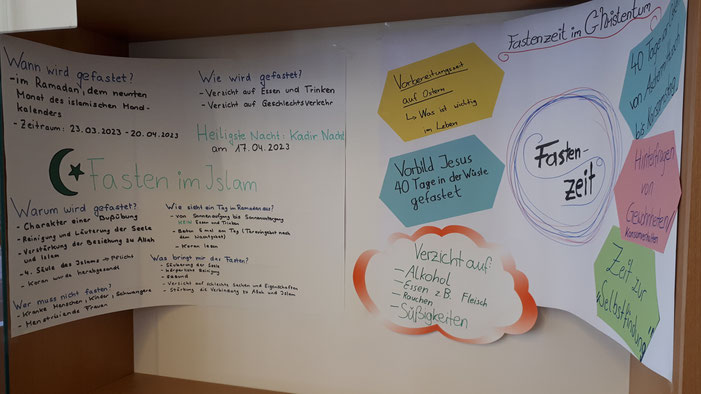 Wann wird gefastet?
- im Ramadan, dem neunten
Monat des islamischen Mond-
kalenders
- Zeitraum: 23.03.2023 - 20.04.2023
Wie wird gefastet?
- Verzicht auf Essen und Trinken
- Verzicht auf Geschlechtsverkehr
Heiligste Nacht: Kadir Nacht
am 17.04.2023
Fasten im Islam
Warum wird gefastet?
- Charakter einer Bußübung
- Reinigung und Läuterung der Seele
- Verstärkung der Beziehung zu Allah
und Islam
- 4. Säule des Islams → Pflicht
- Koran wurde herabgesandt
Wer muss nicht fasten?
- Kranke Menschen, Kinder, Schwangere
- Menstruierende Frauen
Wie sieht ein Tag in Ramadan aus?
- von Sonnenaufgang bis Sonnenuntergang
Essen und Trinken
- Beten 5 mal am Tag (
dem Nachtgebet)
- Koran lesen
Was bringt mir das Fasten?
- Säuberung der Seele
- körperliche Reinigung
- gesund
- Verzicht auf schlechte Sachen und Eigenschaften
- Stärkung die Verbindung zu Allah und Islam
Fastenzeit im Christentum
Vorbereitungszeit
auf Ostern
↳ Was ist wichtig
im Leben
Vorbild Jesus
40 Tage in der Wüste
gefastet
Verzicht auf:
- Alkohol
- Essen z.B. Fleisch
- Rauchen
- Süßigkeiten
Fasten-
zeit
40 Tage vor
von Aschermittwoch
bis Karsamstag
Hinterfragen
von
Gewohnheiten/
Konsumverhalten
Zeit zur
"Selbstfindung"